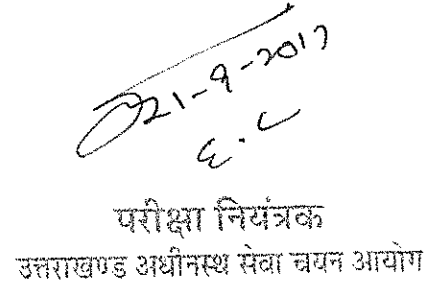 21-9-2017
E.C
परीक्षा नियंत्रक
उत्तराखण्ड अधीनस्थ सेवा चयन आयोग